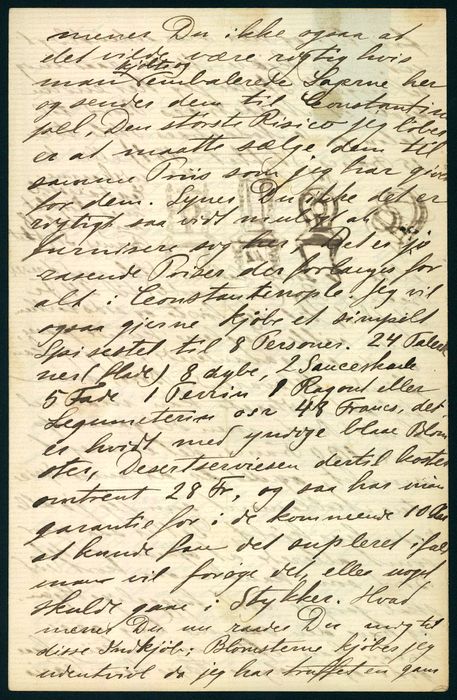 mener Du ikke ogsaa at
det vilde være rigtig hvis
man kjöbte og embalerede Sagerne her
og sendes dem til Constantin
pel. Den störste Risico jeg löber
er at maatte sælge dem til
samme Priis som jeg har givet
for dem. Synes Du ikke det er
rigtigt saa vidt muligt at
furnisere sig her det er jo
rasende Priser der forlanges for
alt i Constantinople. Jeg vil
ogsaa gjerne kjöbe et simpelt
Spisestel til 8 Personer. 24 Taler
ner (flade) 8 dybe, 2 Sauceskaale
5 Fade 1 Terrin 1 Ragout eller
Legumeterin osv 48 Francs, det
er hvidt med yndige blaae Blom
ster, Desertserviesen dertil koster
omtrent 28 Fr, og saa har man
garantie for i de kommende 10 Aar
at kunde faae det supleret ifald
man vil foröge det, eller noget
skulde gaae i Stykker. Hvad
mener Du nu raader Du mig til
disse Indkjöb; Blomsterne kjöbes jeg
udentvivl da jeg har truffet en gam